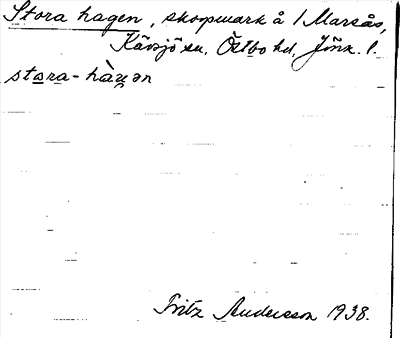 Stora hagen, skogsmark å 1 Marsås,
Kävsjö sn, Östbo hd, Jönk. l.
stora-hàgən
Fritz Andersson 1938.